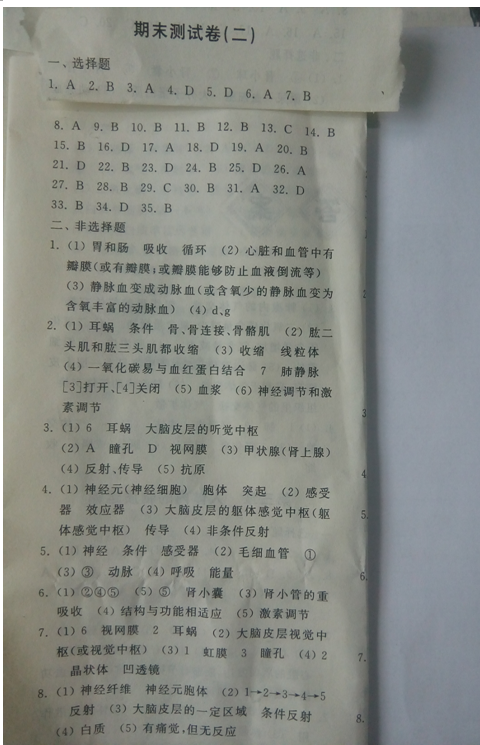 期末测试卷(二)
一、选择题
1. A 2. B 3. A 4. D 5. D 6. A 7. B
8. A 9. B 10. B 11. B 12. B 13. C 14. B
15. B 16. D 17. A 18. D 19. A 20. B
21. D 22. B 23. D 24. B 25. D 26. A
27. B 28. B 29. C 30. B 31. A 32. D
33. B 34. D 35. B
二、非选择题
1. (1) 胃和肠 吸收 循环 (2) 心脏和血管中有
瓣膜(或有瓣膜;或瓣膜能够防止血液倒流等)
(3) 静脉血变成动脉血(或含氧少的静脉血变为
含氧丰富的动脉血) (4) d、g
2. (1) 耳蜗 条件 骨、骨连接、骨骼肌 (2) 肱二
头肌和肱三头肌都收缩 (3) 收缩 线粒体
(4) 一氧化碳易与血红蛋白结合 7 肺静脉
[3]打开、[4]关闭 (5) 血浆 (6) 神经调节和激
素调节
3. (1) 6 耳蜗 大脑皮层的听觉中枢
(2) A 瞳孔 D 视网膜 (3) 甲状腺(肾上腺)
(4) 反射、传导 (5) 抗原
4. (1) 神经元(神经细胞) 胞体 突起 (2) 感受
器 效应器 (3) 大脑皮层的躯体感觉中枢(躯
体感觉中枢) 传导 (4) 非条件反射
5. (1) 神经 条件 感受器 (2) 毛细血管 ①
(3) ③ 动脉 (4) 呼吸 能量
6. (1) ②④⑤ (5) ⑤ 肾小囊 (3) 肾小管的重
吸收 (4) 结构与功能相适应 (5) 激素调节
7. (1) 6 视网膜 2 耳蜗 (2) 大脑皮层视觉中
枢(或视觉中枢) (3) 1 虹膜 3 瞳孔 (4) 2
晶状体 凹透镜
8. (1) 神经纤维 神经元胞体 (2) 1→2→3→4→5
反射 (3) 大脑皮层的一定区域 条件反射
(4) 白质 (5) 有痛觉,但无反应
2
3
4
5.
6.
7.
8.